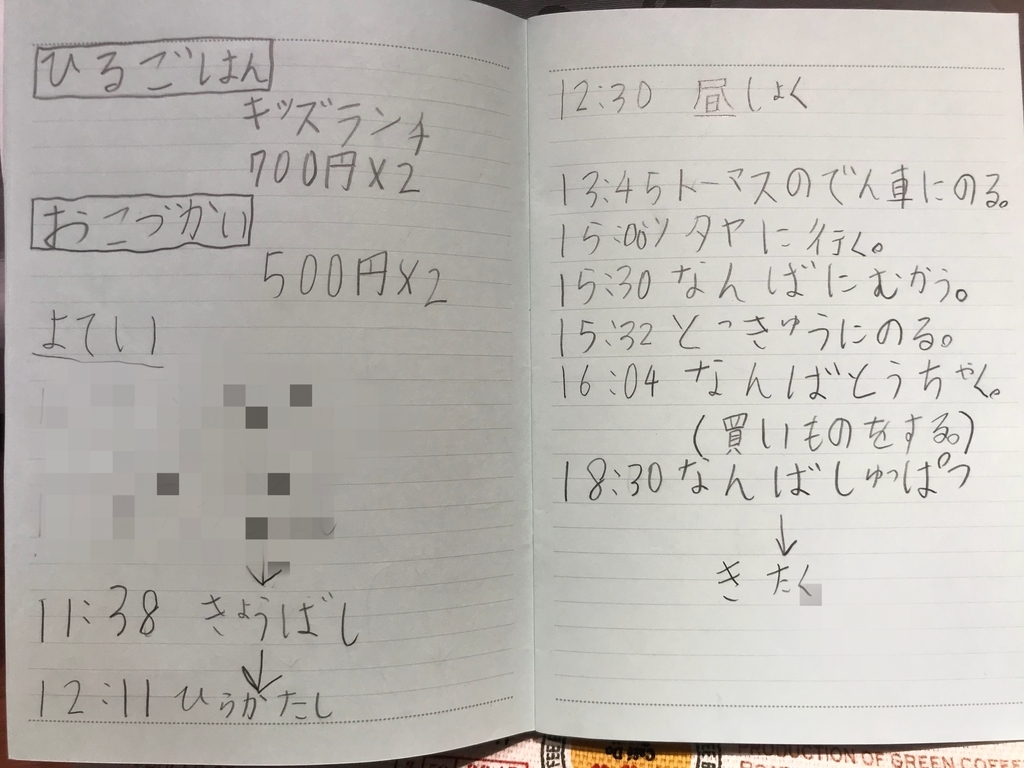 ひるごはん
キッズランチ
700円×2
おこづかい
500円×2
よてい
↓
11:38 きょうばし
↓
12:11 ひらかたし
12:30 昼しょく
13:45 トーマスのでん車にのる。
15:00 ツタヤに行く。
15:30 なんばにむかう。
15:32 とっきゅうにのる。
16:04 なんばとうちゃく。
(買いものをする。)
18:30 なんばしゅっぱつ
↓
きたく
PRODUCTION OF GREEN COFFEE